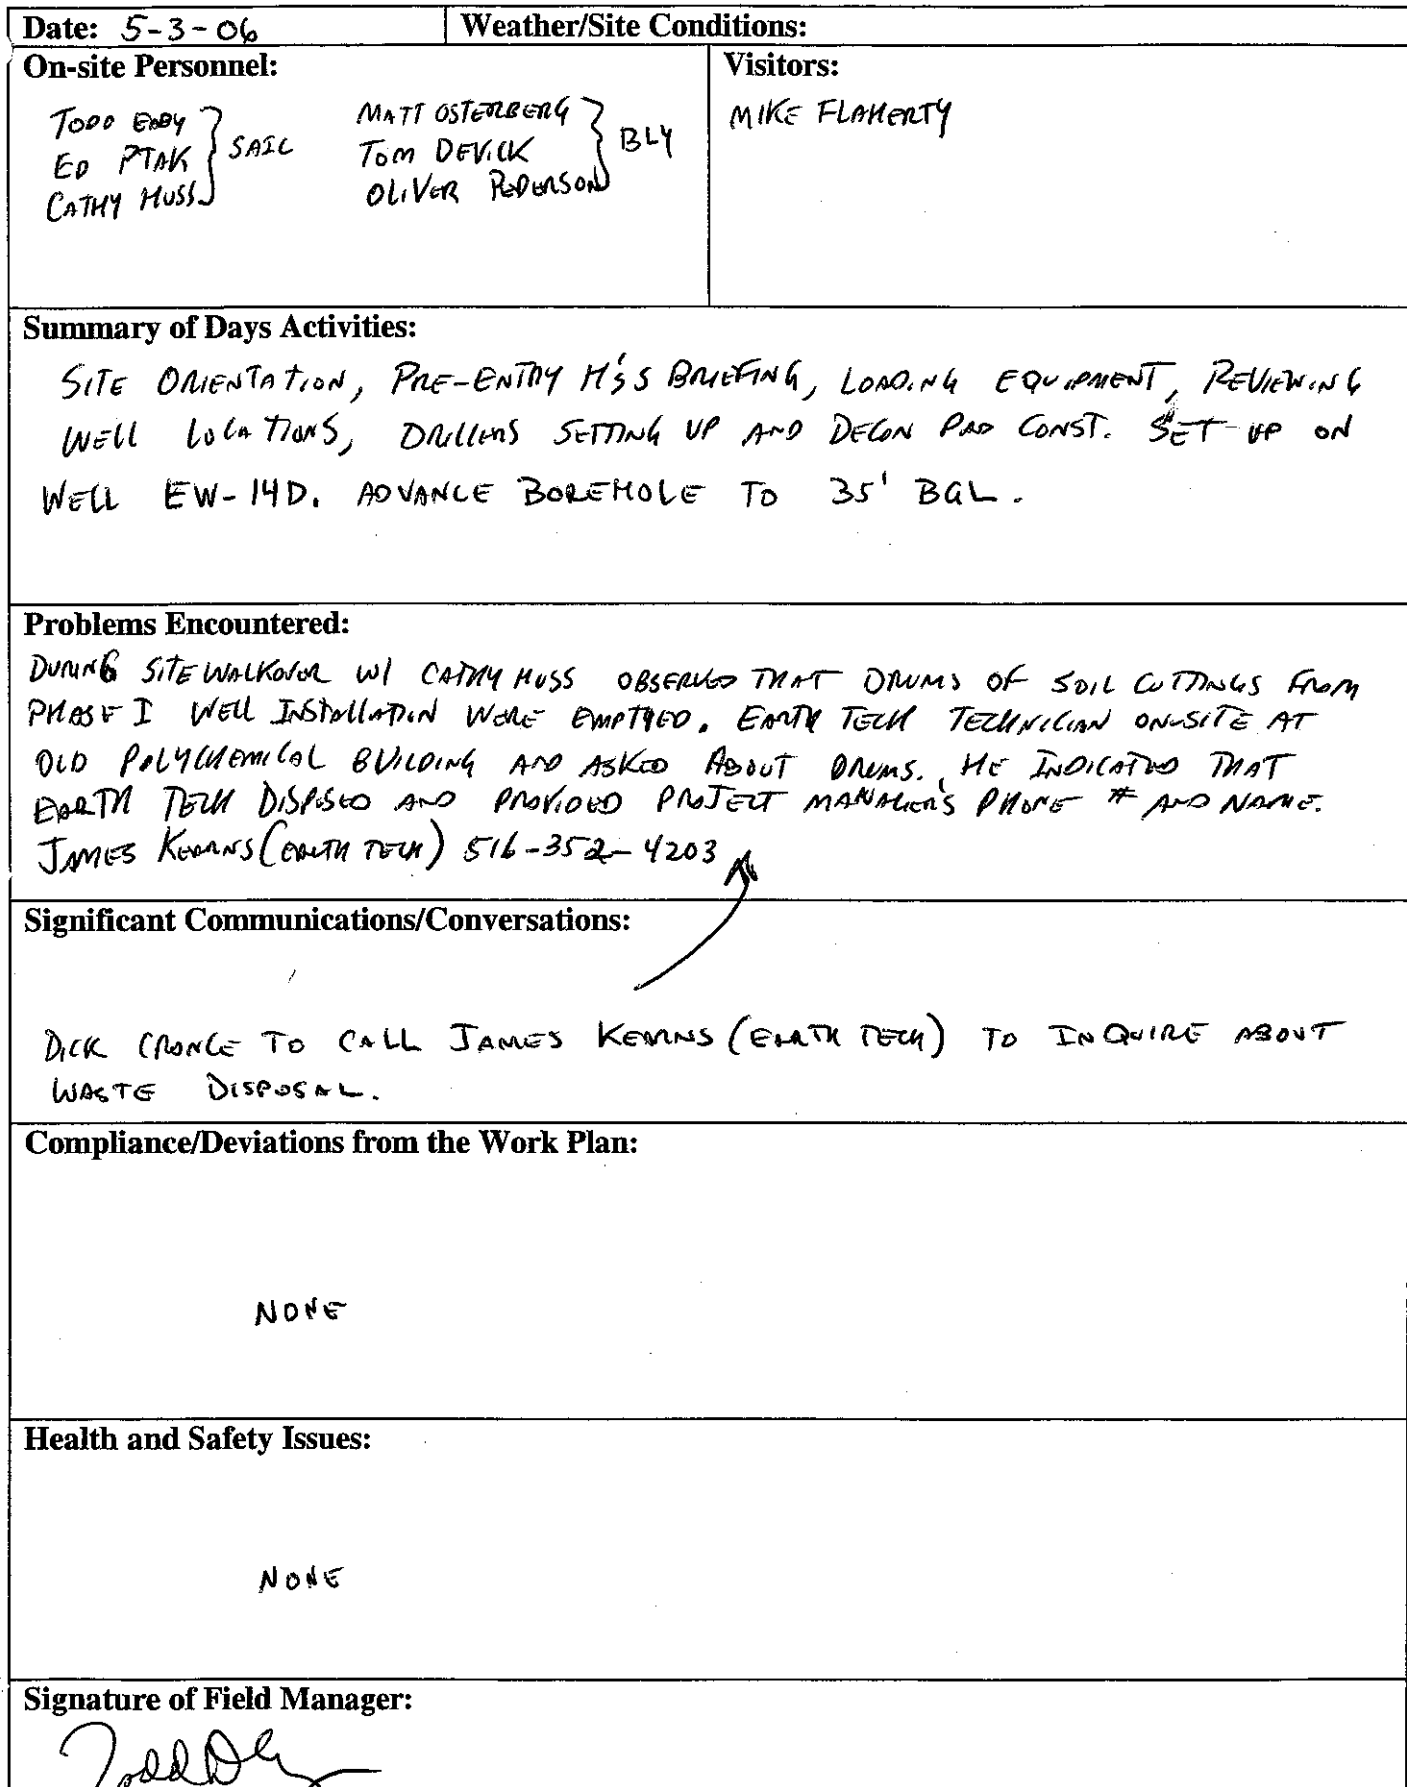 Date: 5-3-06 Weather/Site Conditions:
On-site Personnel: Visitors:
TODD EBBY } SAIC MATT OSTERBERG } BLY MIKE FLAHERTY
ED PTAK TOM DEVICK
CATHY HUSS OLIVER PEDERSON
Summary of Days Activities:
SITE ORIENTATION, PRE-ENTRY H&S BRIEFING, LOADING EQUIPMENT, REVIEWING
WELL LOCATIONS, DRILLERS SETTING UP AND DECON PAD CONST. SET-UP ON
WELL EW-14D. ADVANCE BOREHOLE TO 35' BGL.
Problems Encountered:
DURING SITE WALKOVER W/ CATHY HUSS OBSERVED THAT DRUMS OF SOIL CUTTINGS FROM
PHASE I WELL INSTALLATION WERE EMPTIED. EARTH TECH TECHNICIAN ON-SITE AT
OLD POLYCHEMICAL BUILDING AND ASKED ABOUT DRUMS. HE INDICATED THAT
EARTH TECH DISPOSED AND PROVIDED PROJECT MANAGER'S PHONE # AND NAME.
JAMES KEARNS (EARTH TECH) 516-352-4203
Significant Communications/Conversations:
DICK CRONCE TO CALL JAMES KEARNS (EARTH TECH) TO INQUIRE ABOUT
WASTE DISPOSAL.
Compliance/Deviations from the Work Plan:
NONE
Health and Safety Issues:
NONE
Signature of Field Manager: